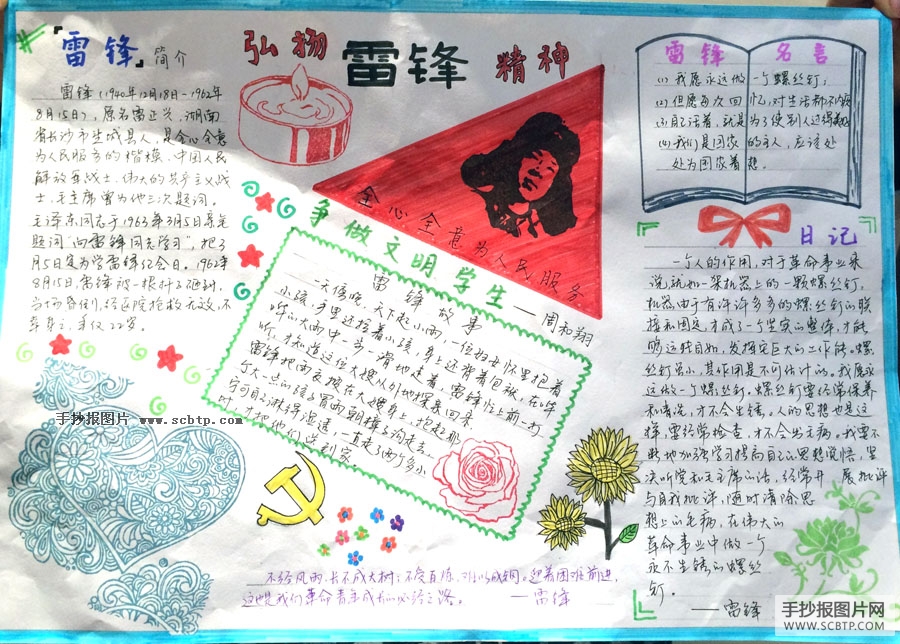 弘扬 雷锋 精神
雷锋 简介
雷锋（1940年12月18日—1962年
8月15日），原名雷正兴，湖南
省长沙市望城县人，是全心全意
为人民服务的楷模，中国人民
解放军战士，伟大的共产主义战
士，毛主席曾为他三次题词。
毛泽东同志于1963年3月5日亲笔
题词“向雷锋同志学习”，把3
月5日定为学雷锋纪念日。1962年
8月15日，雷锋被一根杆子砸到，
当场昏倒，经医院抢救无效，不
幸身亡，年仅22岁。
全心全意为人民服务
——周和翔
争做文明学生
雷锋故事
一天傍晚，天下起小雨，一位妇女怀里抱着
小孩，手里还拉着小孩，身上还背着包袱，在哗
哗的大雨中一步一滑地走着，雷锋忙上前一打
听，才知道这位大嫂从外地探亲回来
雷锋把雨衣披在大嫂身上，抱起那
个大一点的孩子冒雨朝樟子沟走去，
宁可自己淋得湿透，一直走了两个多小
时，才把他们送到家。
雷锋 名言
(1)我愿永远做一个螺丝钉；
(2)但愿每次回忆，对生活都不内疚
(3)自己活着，就是为了使别人过得美好
(4)我们是国家的主人，应该处
处为国家着想。
日记
一个人的作用，对于革命事业来
说，就如一架机器上的一颗螺丝钉，
机器由于有许许多多的螺丝钉的联
接和固定，才成了一个坚实的整体，才能
够运转自如，发挥它巨大的工作能。螺
丝钉虽小，其作用是不可估计的。我愿永
远做一个螺丝钉。螺丝钉要经常保养
和清洗，才不会生锈。人的思想也是这
样，要经常检查，才不会出毛病。我要不
断地加强学习提高自己的思想觉悟，坚
决听党和毛主席的话，经常开展批评
与自我批评，随时清除思
想上的毛病，在伟大的
革命事业中做一个
永不生锈的螺丝
钉。
——雷锋
不经风雨，长不成大树；不受百炼，难以成钢。迎着困难前进，
这也是我们革命青年成长的必经之路。 ——雷锋
手抄报图片 www.scbtp.com
手抄报图片网
WWW.SCBTP.COM